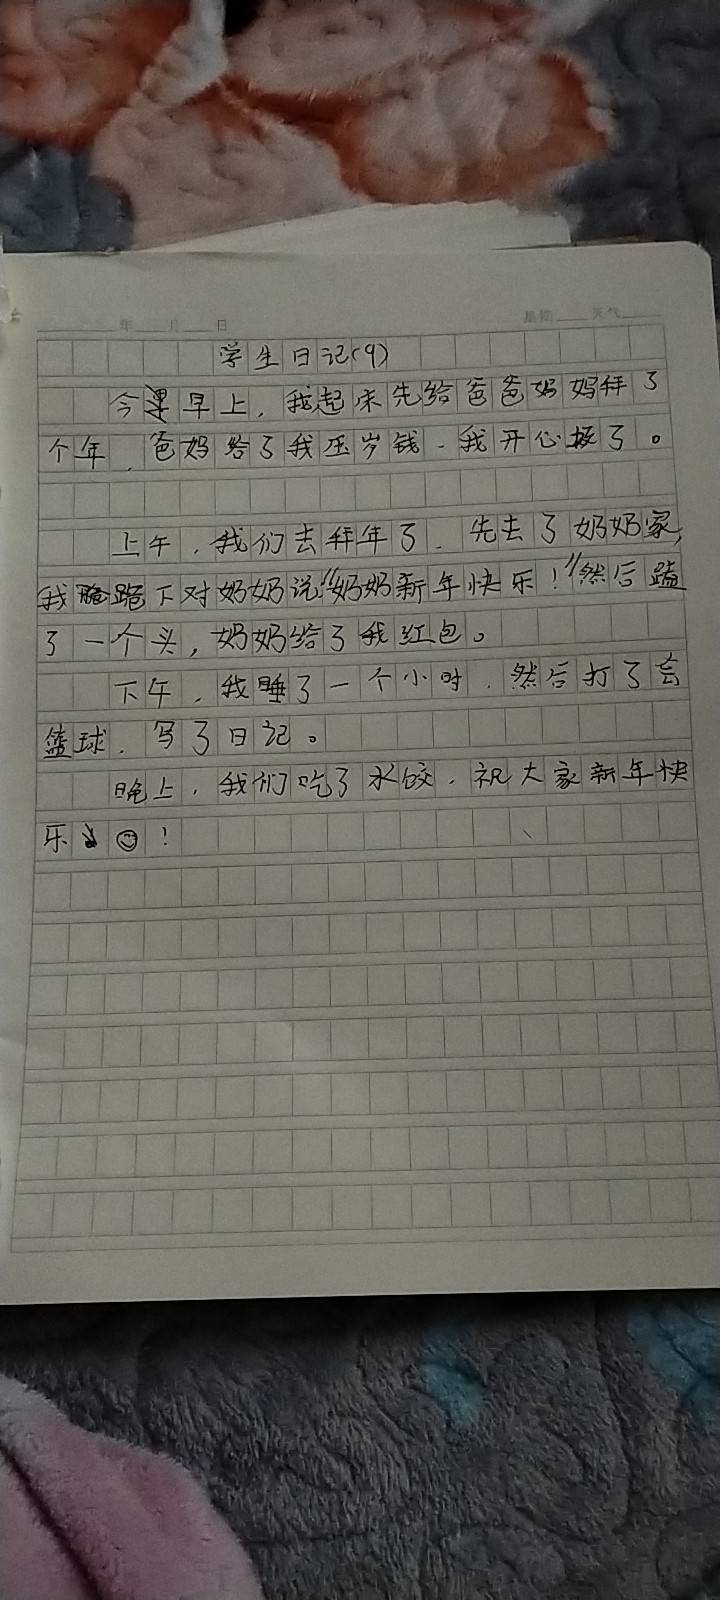 年 月 日 星期 天气
学生日记(9)
今早上，我起床先给爸爸妈妈拜了
个年，爸妈给了我压岁钱，我开心极了。
上午，我们去拜年了，先去了奶奶家，
我跪下对奶奶说"奶奶新年快乐！"然后磕
了一个头，奶奶给了我红包。
下午，我睡了一个小时，然后打了会
篮球，写了日记。
晚上，我们吃了水饺，祝大家新年快
乐 ☺！